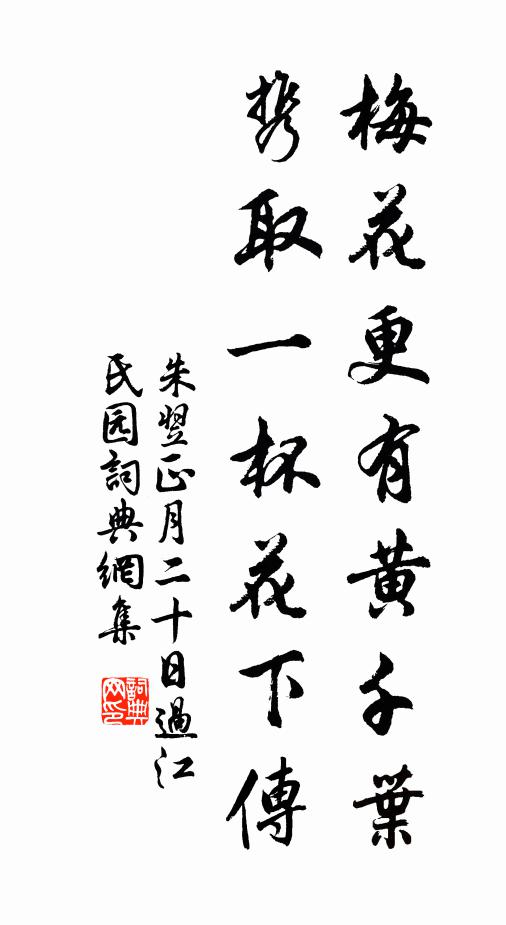 梅花更有黄千葉
携取一杯花下傳
朱翌正月二十日過江
民园詞典網集
詞典网印